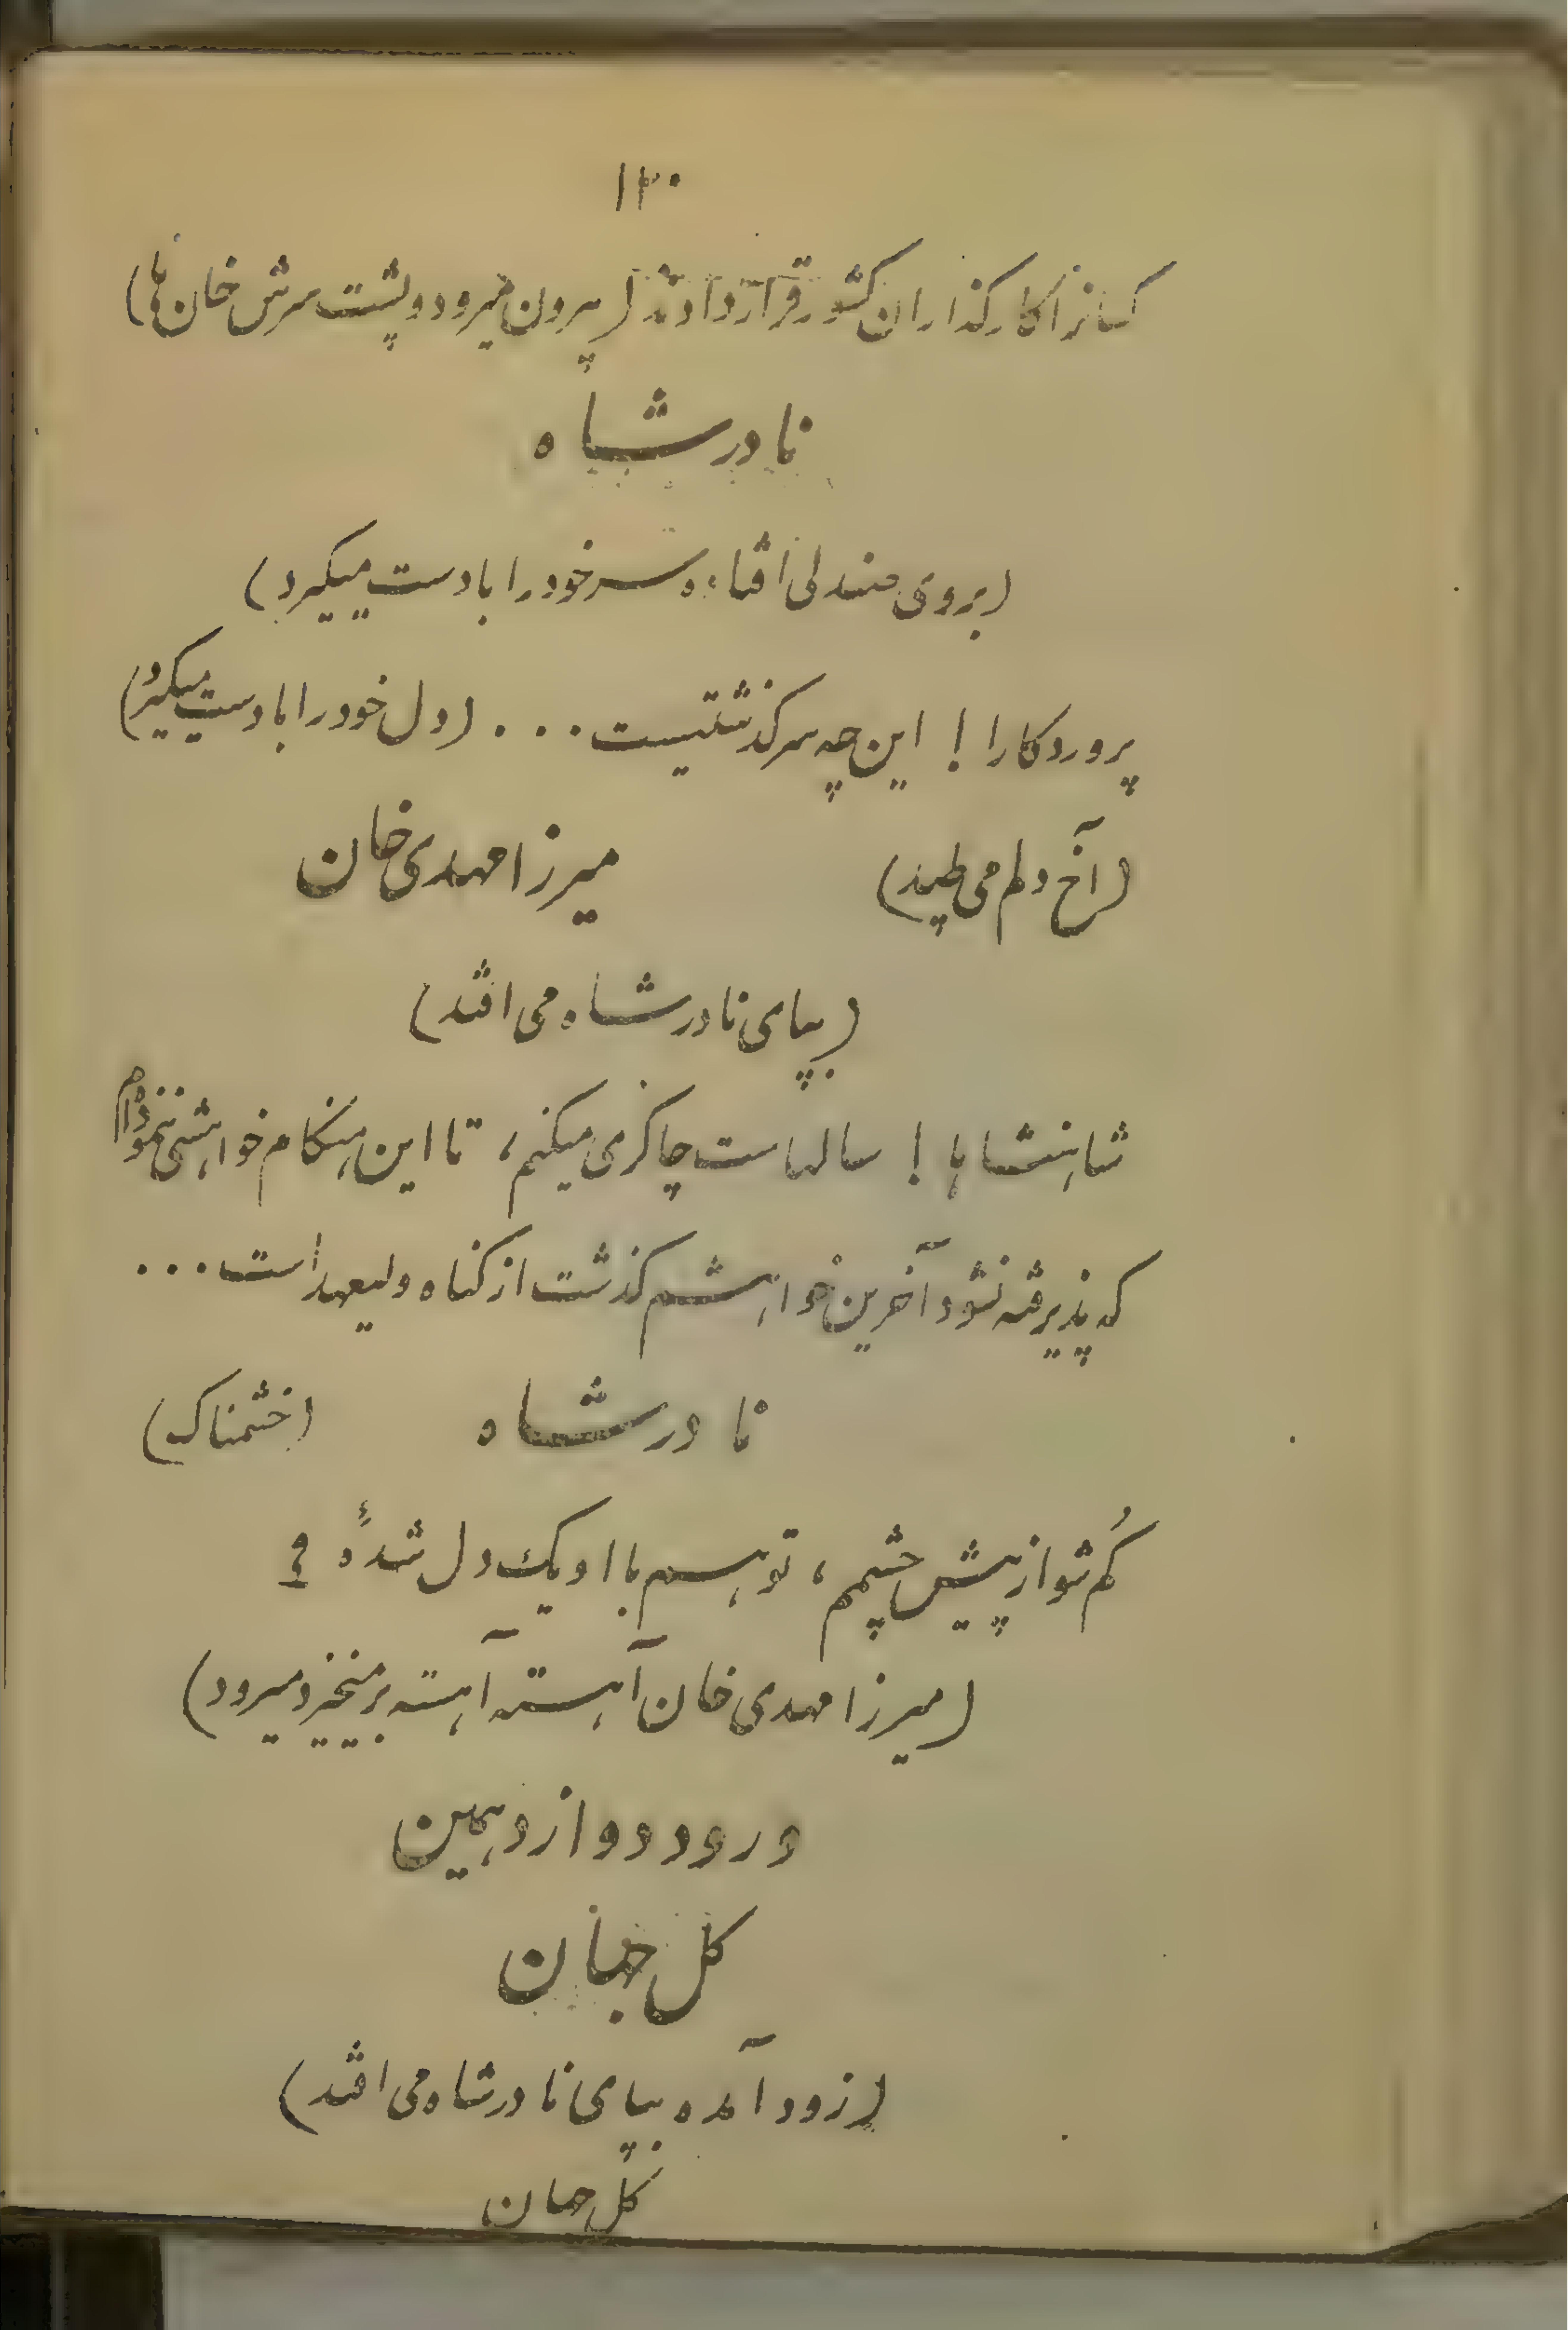 ۱۳۰
کسانرا کارکذاران کشور قرار دادند (بیرون میرود و پشت سرش خان ها)
نادر شاه
(بروی صندلی افتاده سر خود را با دست میکیرد)
پروردکارا ! این چه سرکذشتیست . . . (دل خود را با دست میکیرد)
(آخ دلم می طپد) میرزا مهدی خان
(بپای نادر شاه می افتد)
شاهنشاها ! سالهاست چاکری میکنم، تا این هنکام خواهشی ننموده‌ام
که پذیرفته نشود آخرین خواهشم کذشت از کناه ولیعهد است . . .
نادر شاه (خشمناک)
کُم شو از پیش چشمم، تو هم با او یک دل شدهٔ ؟
(میرزا مهدی خان آهسته آهسته برمیخیزد میرود)
ورود دوازدهمین
کل جهان
(زود آمده بپای نادر شاه می افتد)
کل جهان